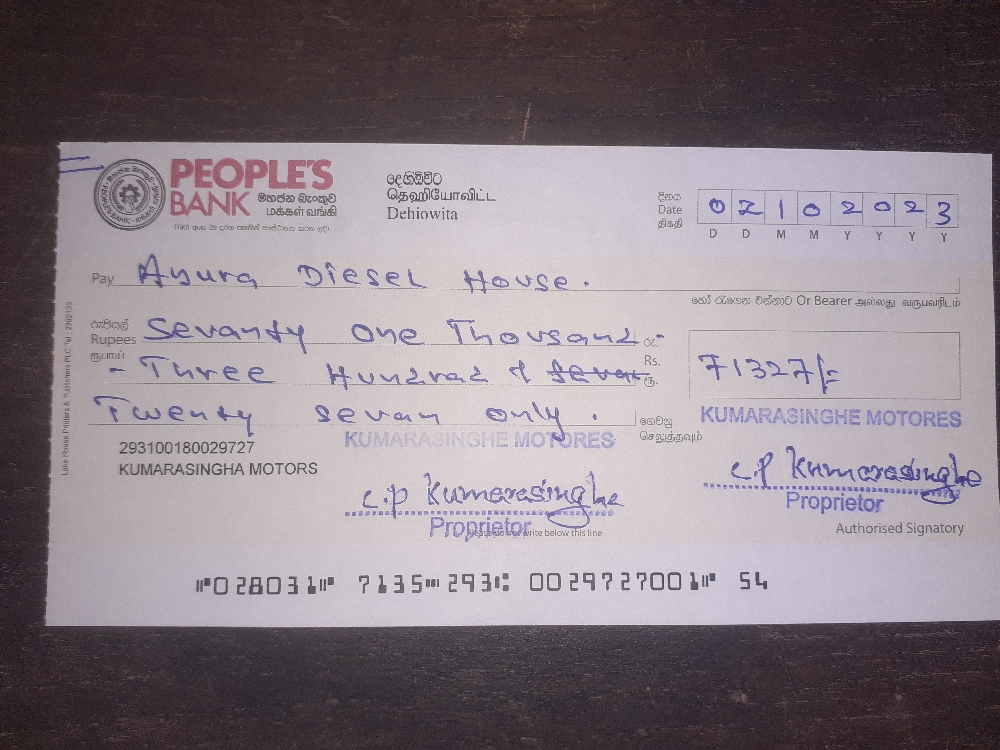 PEOPLE'S
BANK මහජන බැංකුව
மக்கள் வங்கி
දෙහිඕවිට
தெஹியோவிட்ட
Dehiowita
දිනය
Date
திகதி
0 2 1 0 2 0 2 3
D D M M Y Y Y Y
Pay Anura Diesel House.
හෝ රැගෙන එන්නාට Or Bearer அல்லது வருபவரிடம்
රුපියල් Sevanty one Thousand රු.
Rupees
ரூபாய் - Three Hundrad & Rs.
ரூ.
71327/=
Twenty sevan only. ගෙවනු
செலுத்தவும்
293100180029727
KUMARASINGHA MOTORS
KUMARASINGHE MOTORES
KUMARASINGHE MOTORES
c.p Kumarasinghe
c.p Kumarasinghe
Proprietor
Proprietor
Please do not write below this line
Authorised Signatory
Lake House Printers & Publishers PLC
⑈028031⑈ 7135⑉293⑆ 0029727001⑈ 54